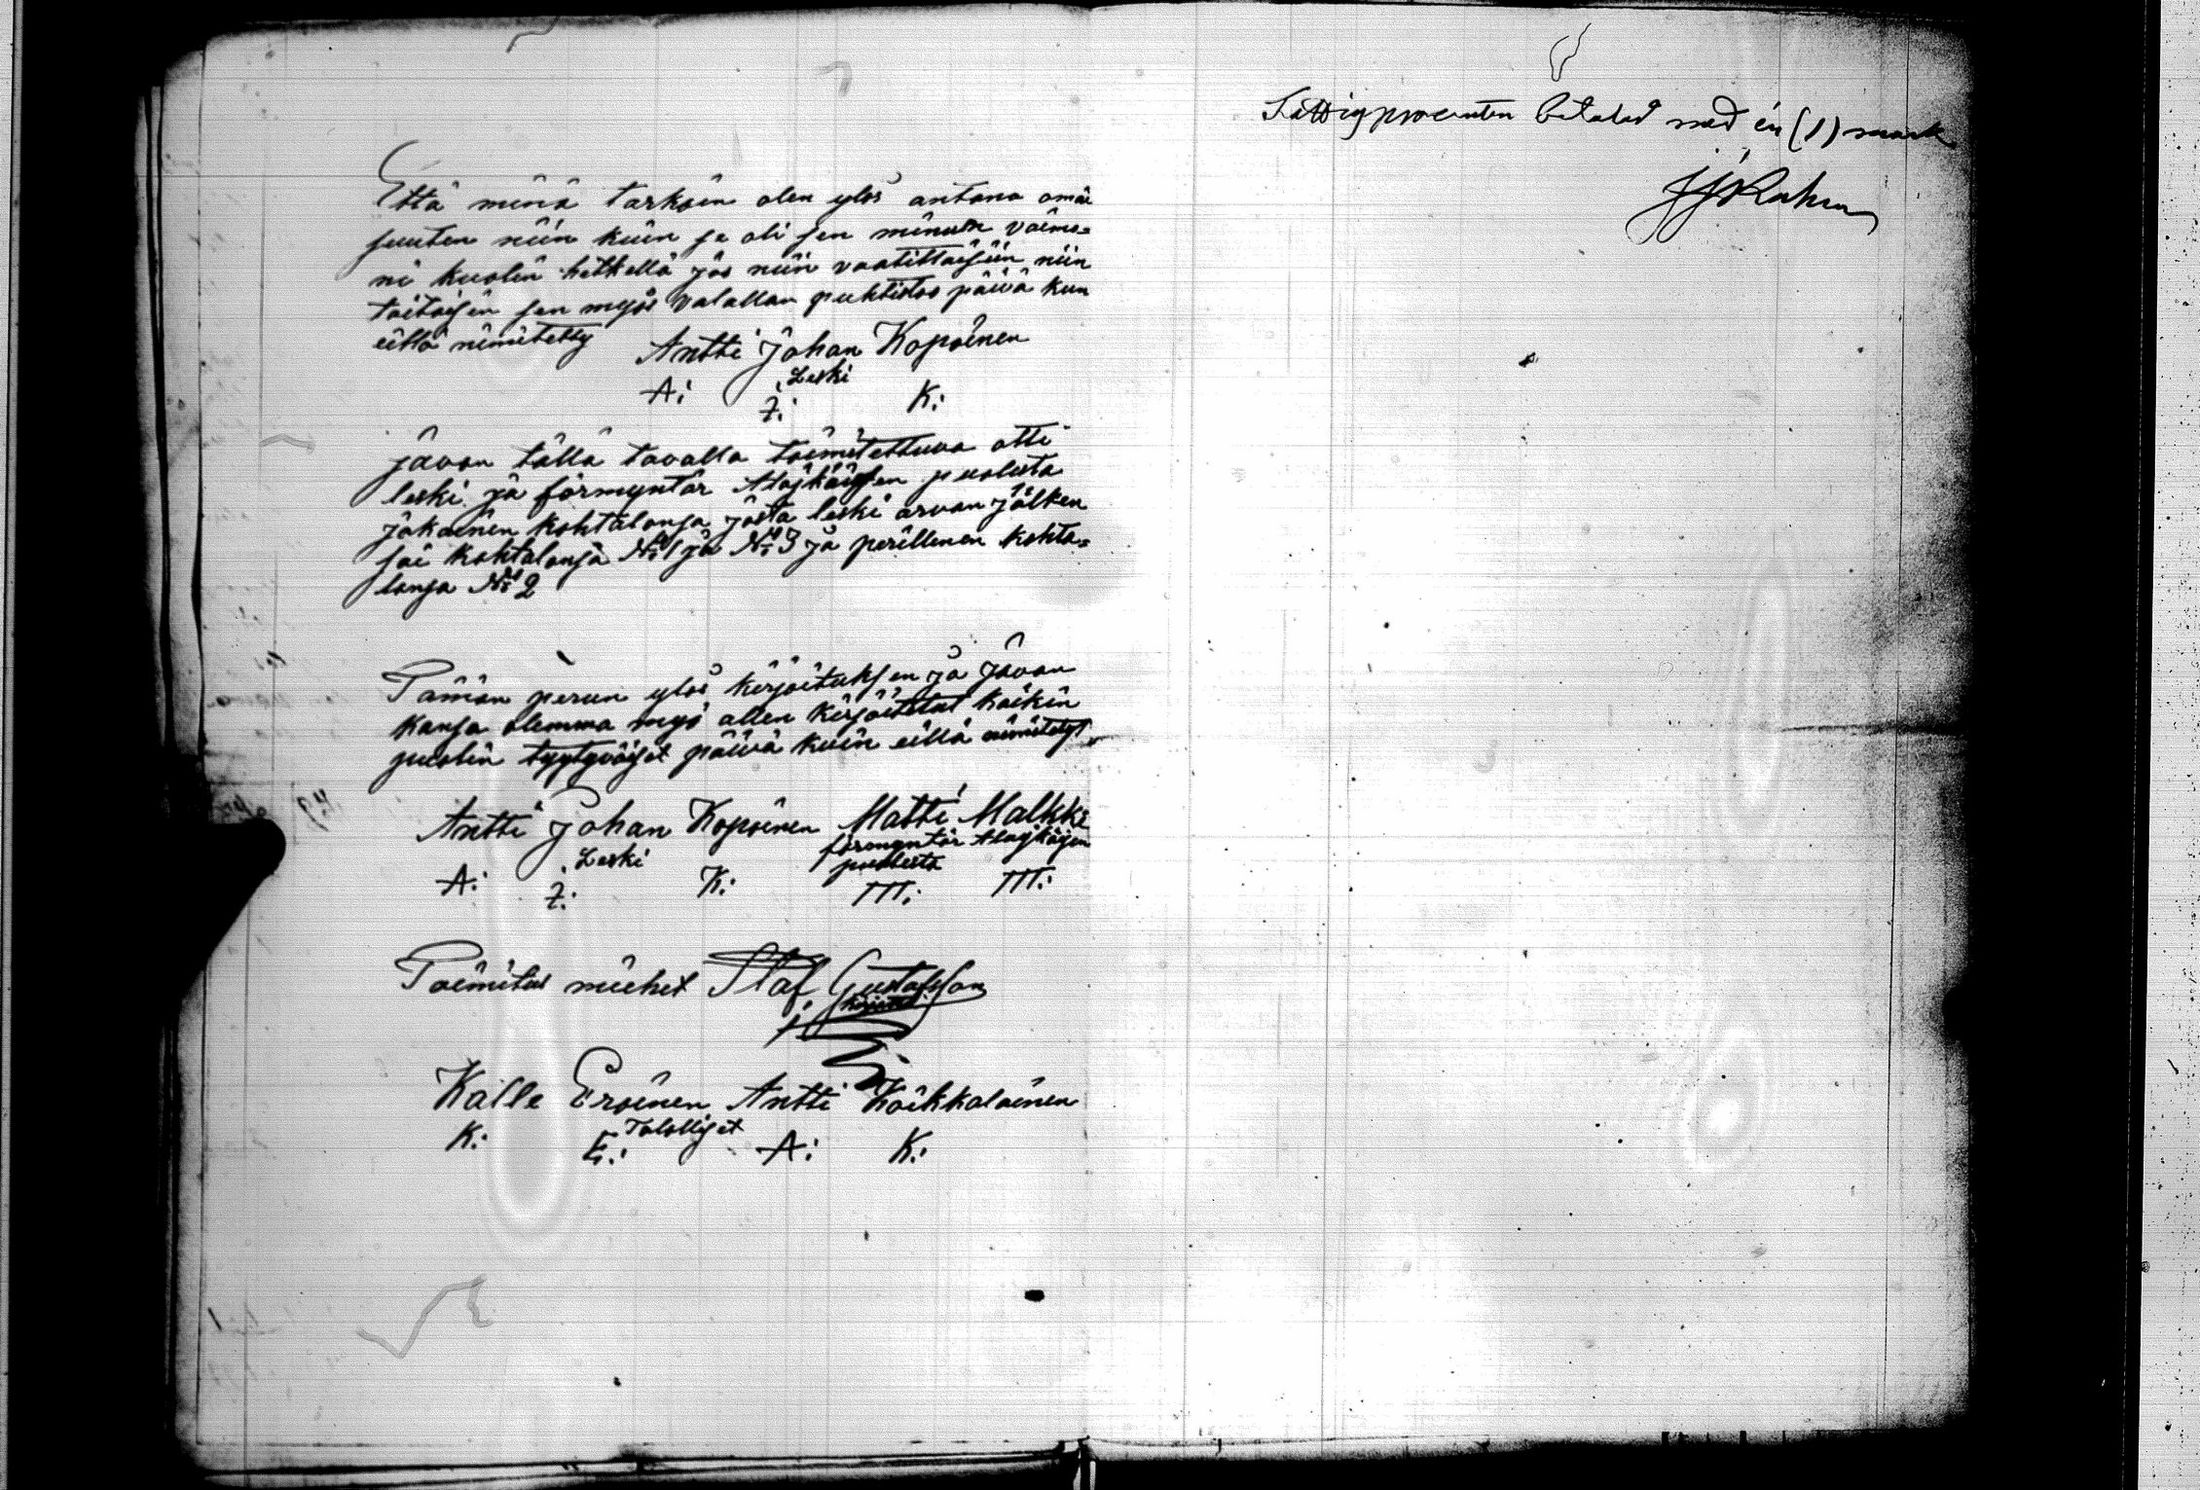 Että minä tarkoin olen ylös antana omai
suuten niin kuin se oli sen minun vaimo=
ni kuolin hetkellä jos niin vaatittaisiin niin
taitaisin sen myös valallan puhtistas päivä kun
eillä nimitetty
Antti Johan Kopoinen
Leski
A: J: K:
Javon tällä tavalla toimitettuva otti
leski ja förmyntär Alajkäisen puolesta
jokainen kohtalonsa josta leski arvan jälken
sai kohtalonsa No 1 ja No 3 ja perillenen kohta=
lonsa No 2
Tämän perun ylös kirjoituksen ja Javon
kansa olemma myö allen kirjoitetut kaikin
puolin tyytyväiset päivä kuin eillä nimitetyt
Antti Johan Kopoinen Matti Malkki
Leski förmyntär Alajkäisen
puolesta
A: J: K: M: M:
Toimitus miehet Staf Gustafsson
Kalle Eroinen Antti Koikkalainen
Talolliset
K: E: A: K:
Fattigprocenten betalad med en (1) mark